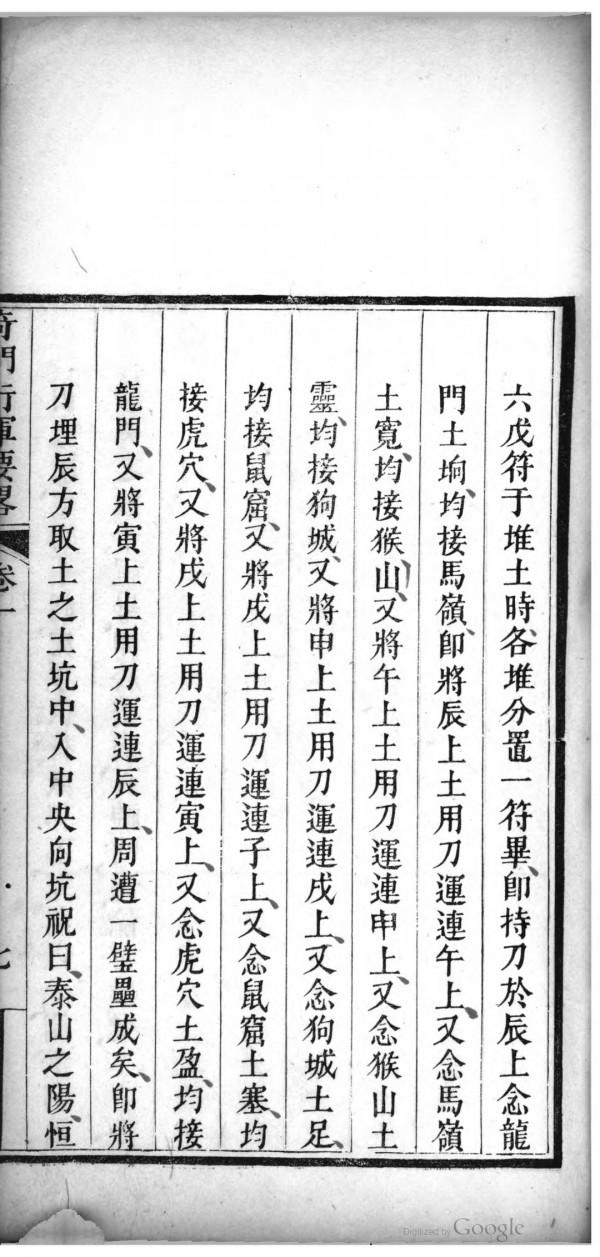 六戊符于堆土時、各堆分置一符畢、卽持刀於辰上念龍
門土坰、均接馬嶺、卽將辰上土用刀運連午上、又念馬嶺
土寬、均接猴山、又將午上土用刀運連申上、又念猴山土
靈、均接狗城、又將申上土用刀運連戌上、又念狗城土足、
均接鼠窟、又將戌上土用刀運連子上、又念鼠窟土塞、均
接虎穴、又將戌上土用刀運連寅上、又念虎穴土盈、均接
龍門、又將寅上土用刀運連辰上、周遭一璧壘成矣、卽將
刀埋辰方取土之土坑中、入中央向坑祝曰、泰山之陽、恒
奇門行軍要畧 卷一 七
Digitized by Google